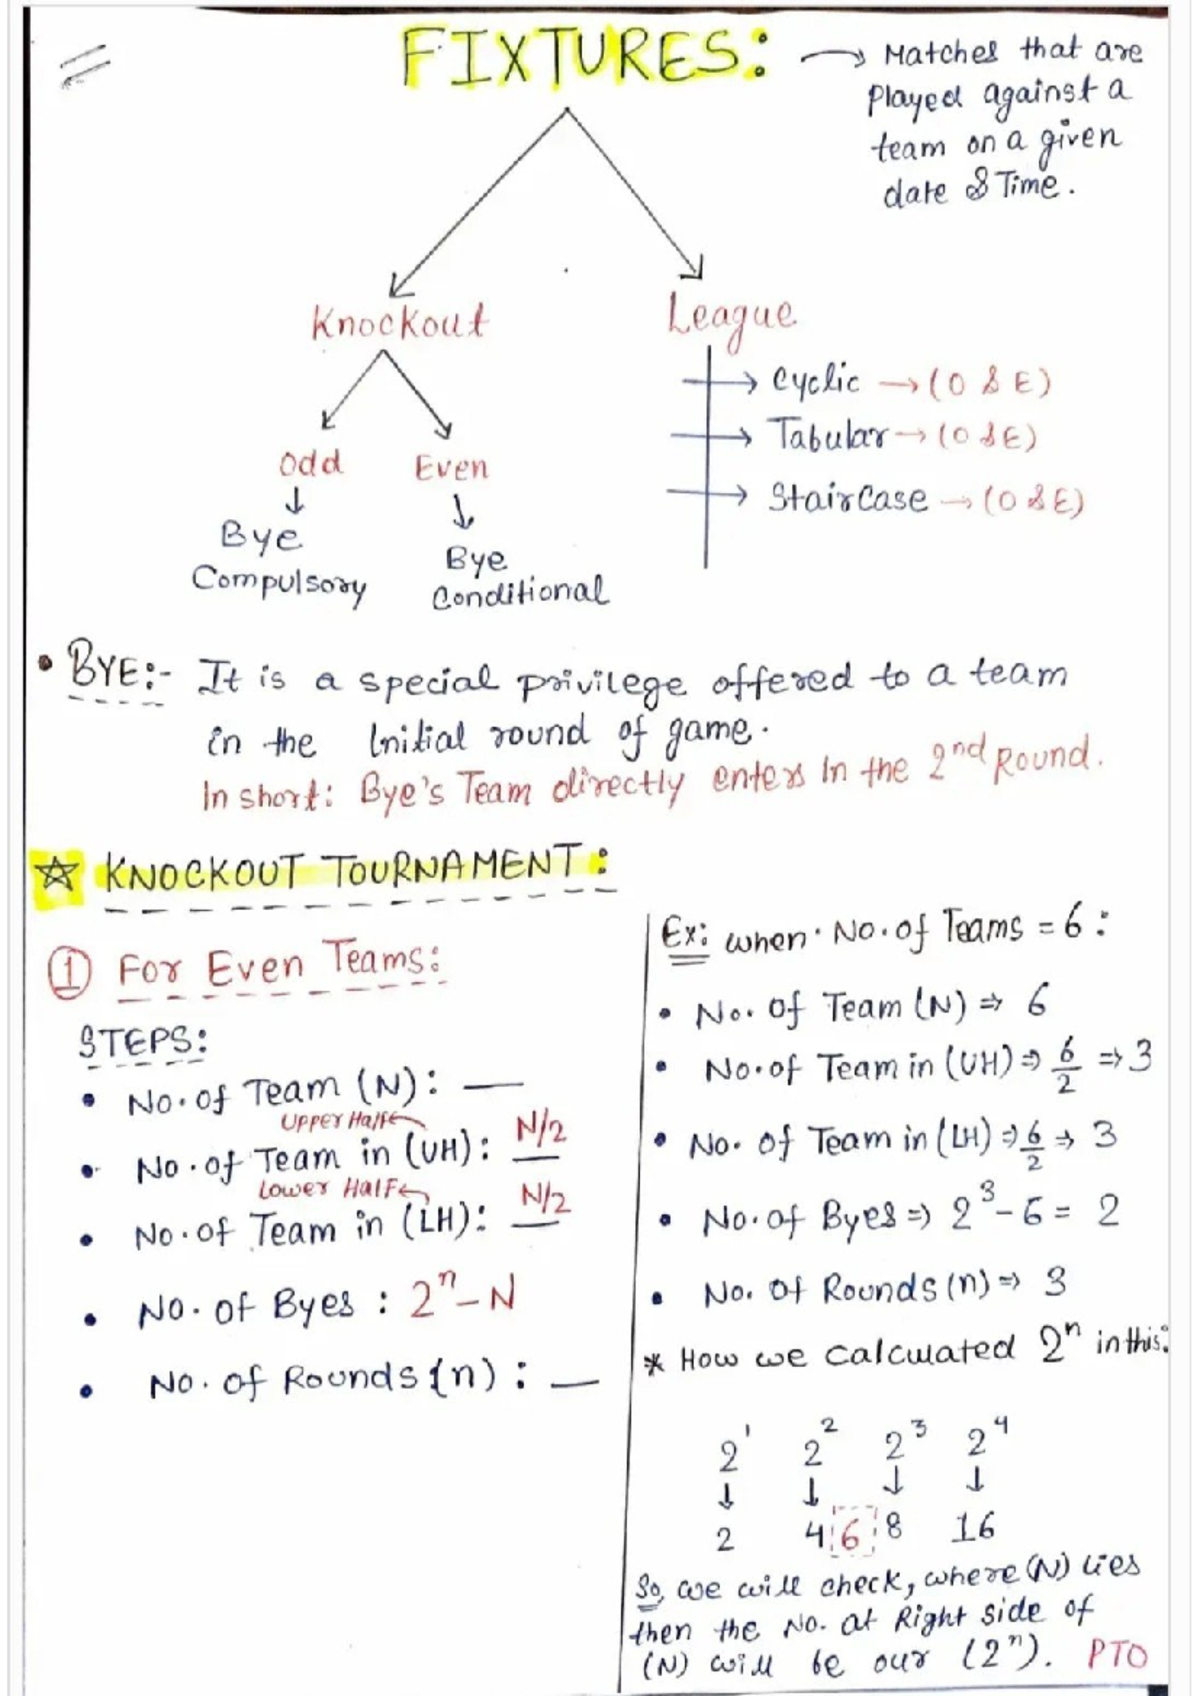 FIXTURES:
→ Matches that are
Played against a
team on a given
date & Time.
Knockout
League
Odd
Even
↓
↓
Bye
Compulsory
Bye
Conditional
→ Cyclic → (O & E)
→ Tabular → (O & E)
→ StairCase → (O & E)
• BYE:- It is a special privilege offered to a team
in the Initial round of game.
In short: Bye's Team directly enters In the 2nd Round.
☆ KNOCKOUT TOURNAMENT:
① For Even Teams:
STEPS:
• No. of Team (N): __
Upper Half
• No. of Team in (UH): N/2
Lower Half
• No. of Team in (LH): N/2
• No. of Byes : 2ⁿ-N
• No. of Rounds (n) : __
Ex: when No. of Teams = 6 :
• No. Of Team (N) ⇒ 6
• No. of Team in (UH) ⇒ 6/2 ⇒ 3
• No. Of Team in (LH) ⇒ 6/2 → 3
• No. of Byes ⇒ 2³-6 = 2
• No. Of Rounds (n) ⇒ 3
* How we calculated 2ⁿ in this:
2¹ 2² 2³ 2⁴
↓ ↓ ↓ ↓
2 4 6 8 16
So, we will check, where (N) lies
then the No. at Right side of
(N) will be our (2ⁿ). PTO